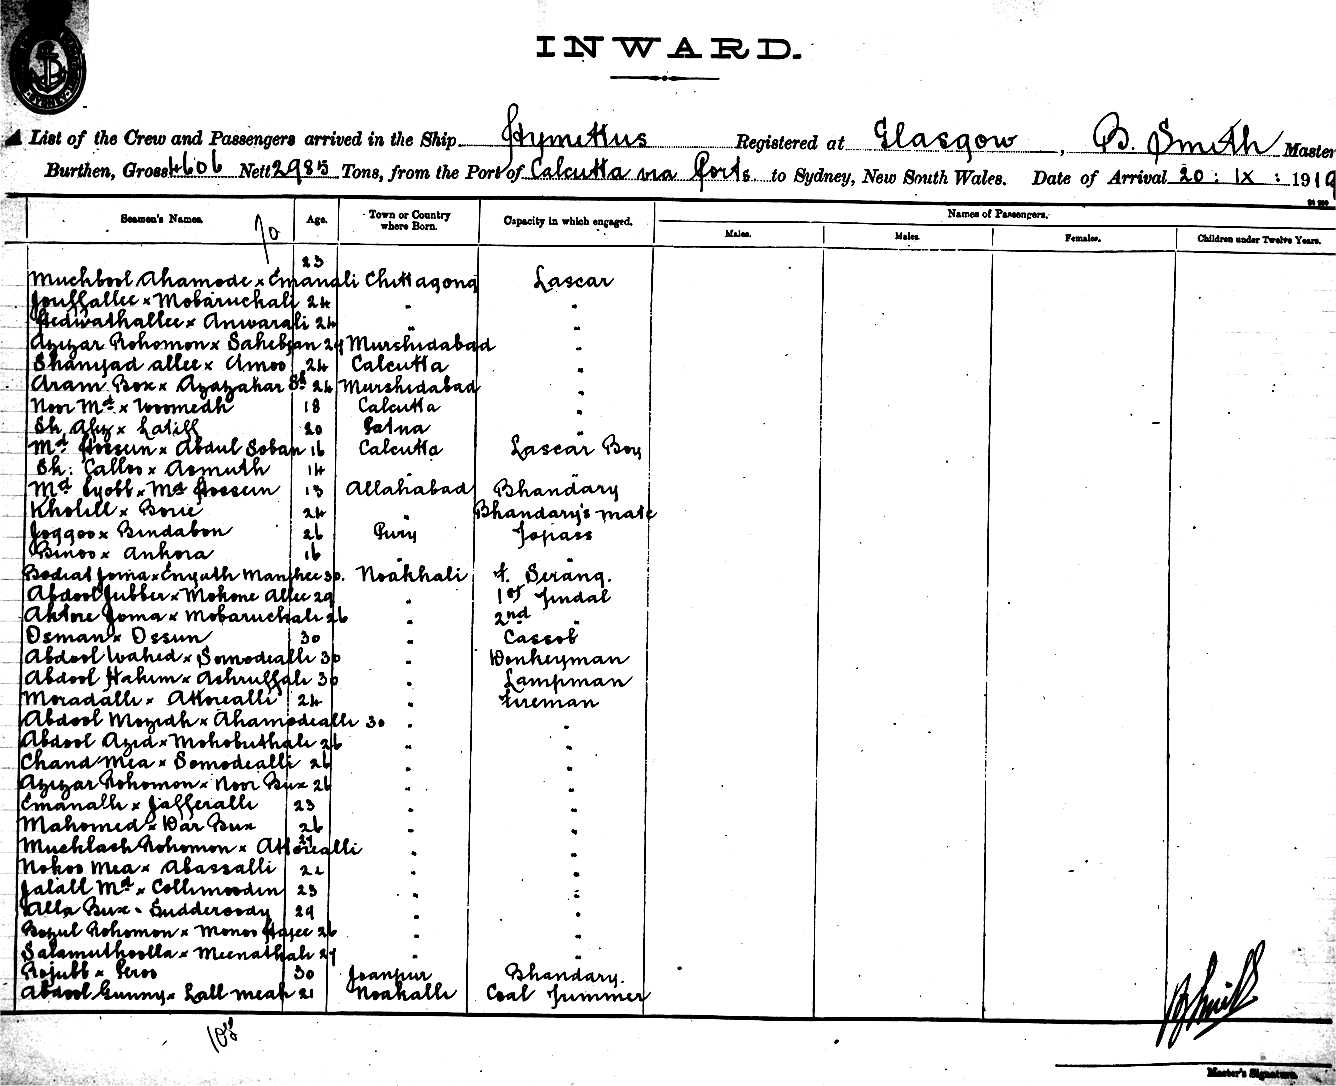 INWARD.
List of the Crew and Passengers arrived in the Ship Hymettus Registered at Glasgow, B. Smith Master
Burthen, Gross 4606 Nett 2985 Tons, from the Port of Calcutta via Ports to Sydney, New South Wales. Date of Arrival 20 : IX : 1919
Seamen's Names. Age. Town or Country where Born. Capacity in which engaged. Names of Passengers.
Males. Males. Females. Children under Twelve Years.
70
23
Muchbool Ahamode x Emanali Chittagong Lascar
Jouffallee x Mobaruchali 24 " "
Hedwathallee x Anwarali 24 " "
Azizar Rohomon x Sahebjan 24 Murshidabad "
Shamjad allee x Amoo 24 Calcutta "
Aram Box x Azazakar Sk 24 Murshidabad "
Noor Md. x Woomedh 18 Calcutta "
Sh. Afiz x Latiff 20 Patna "
Md. Hossein x Abdul Soban 16 Calcutta Lascar Boy
Sh. Calloo x Asmuth 14 " "
Md Eyobb x Md Hossein 13 Allahabad Bhandary
Kholill x Borie 24 " Bhandary's mate
Joggoo x Bindabon 26 Pury Topass
Binoo x Ankora 16 " "
Bodiat Joma x Enyath Manjhee 30. Noakhali F. Serang.
Abdool Jubber x Mohone Allee 29 " 1st Tindal
Aktore Joma x Mobaruchali 26 " 2nd "
Osman x Ossun 30 " Cassob
Abdool Wahed x Somodealli 30 " Donkeyman
Abdool Hakim x Ashruffali 30 " Lampman
Moradalli x Attorealli 24 " Fireman
Abdool Mozidh x Ahamodealli 30 " "
Abdool Azid x Mohobuthali 26 " "
Chand Mea x Somodealli 26 " "
Azizar Rohomon x Noor Bux 26 " "
Emanalli x Jafferalli 23 " "
Mahomed x Dar Bux 26 " "
Muchlach Rohomon x Attorealli 27 " "
Nokoo Mea x Abassalli 22 " "
Jalall Md x Collimooden 23 " "
Alla Bux x Sudderoody 29 " "
Bozul Rohomon x Monoo Hajee 26 " "
Salamuthoolla x Meenathali 27 " "
Rojubb x Peroo 30 Joanpur Bhandary.
Abdool Gunny x Lall Meah 21 Noakalli Coal Trimmer
B Smith
108
Master's Signature.